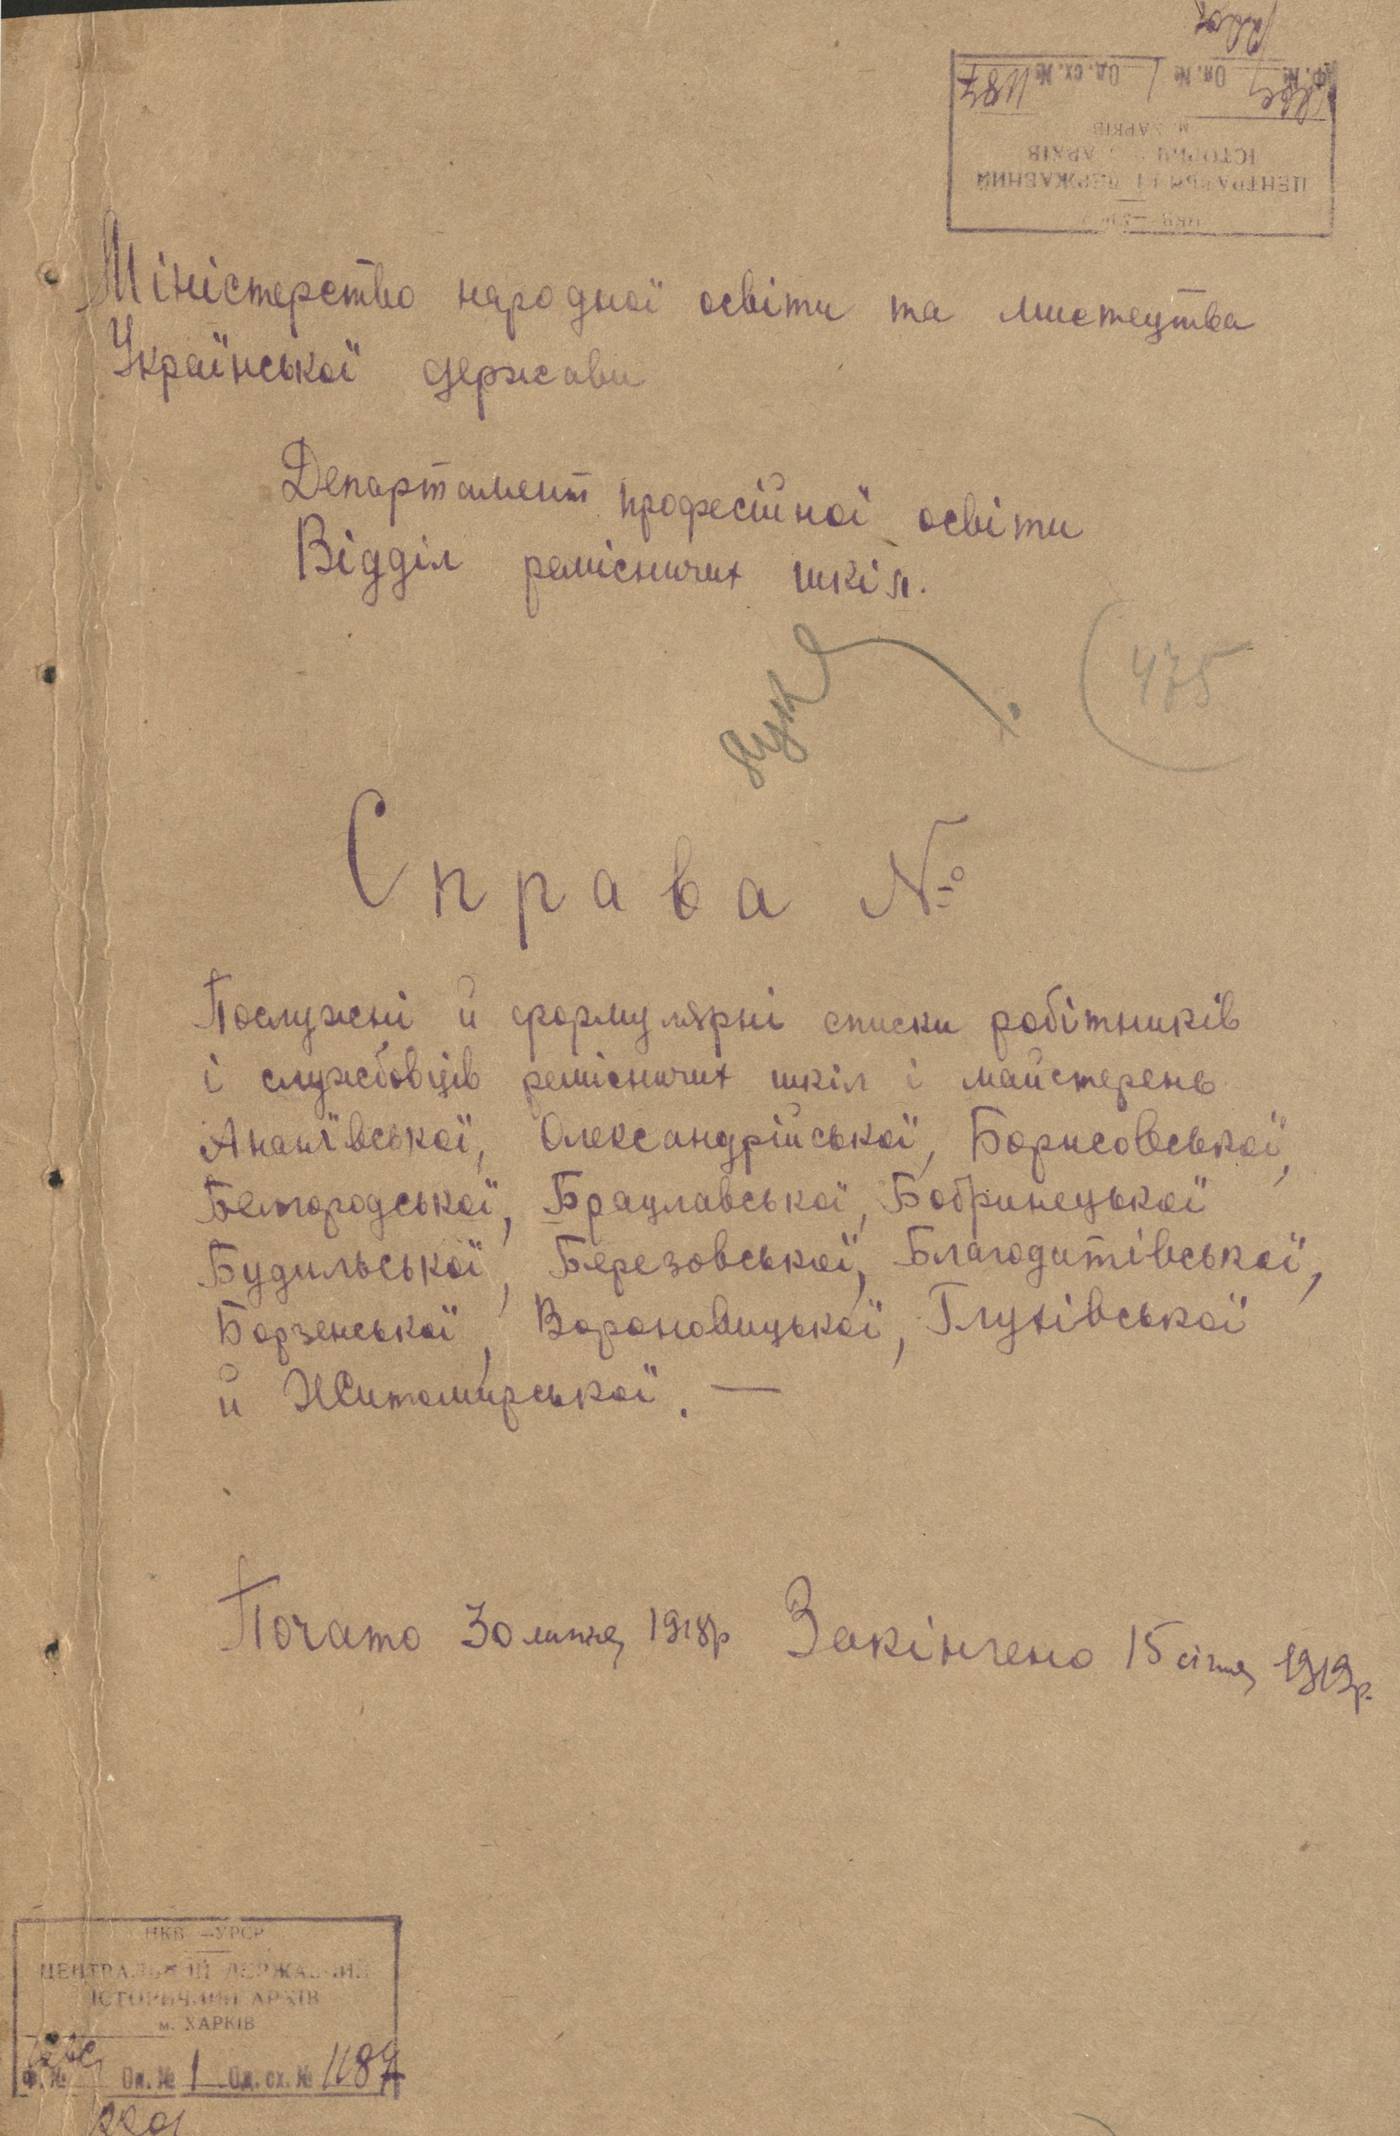 ЦЕНТРАЛЬНИЙ ДЕРЖАВНИЙ
ІСТОРИЧНИЙ АРХІВ
м. ХАРКІВ
Ф. № Оп. № 1 Од. сх. № 1187
Міністерство народної освіти та мистецтва
Української держави
Департамент професійної освіти
Відділ ремісничих шкіл.
475
Справа №
Послужні й формулярні списки робітників
і службовців ремісничих шкіл і майстерень
Ананьївської, Олександрійської, Борисовської,
Белгородської, Брацлавської, Бобринецької
Будильської, Березовської, Благодатівської,
Борзенської, Вороновицької, Глухівської
й Житомирської. —
Почато 30 липня 1918р Закінчено 15 січня 1919р.
НКВС—УРСР
ЦЕНТРАЛЬНИЙ ДЕРЖАВНИЙ
ІСТОРИЧНИЙ АРХІВ
м. ХАРКІВ
Ф. № Оп. № 1 Од. сх. № 1187
2201